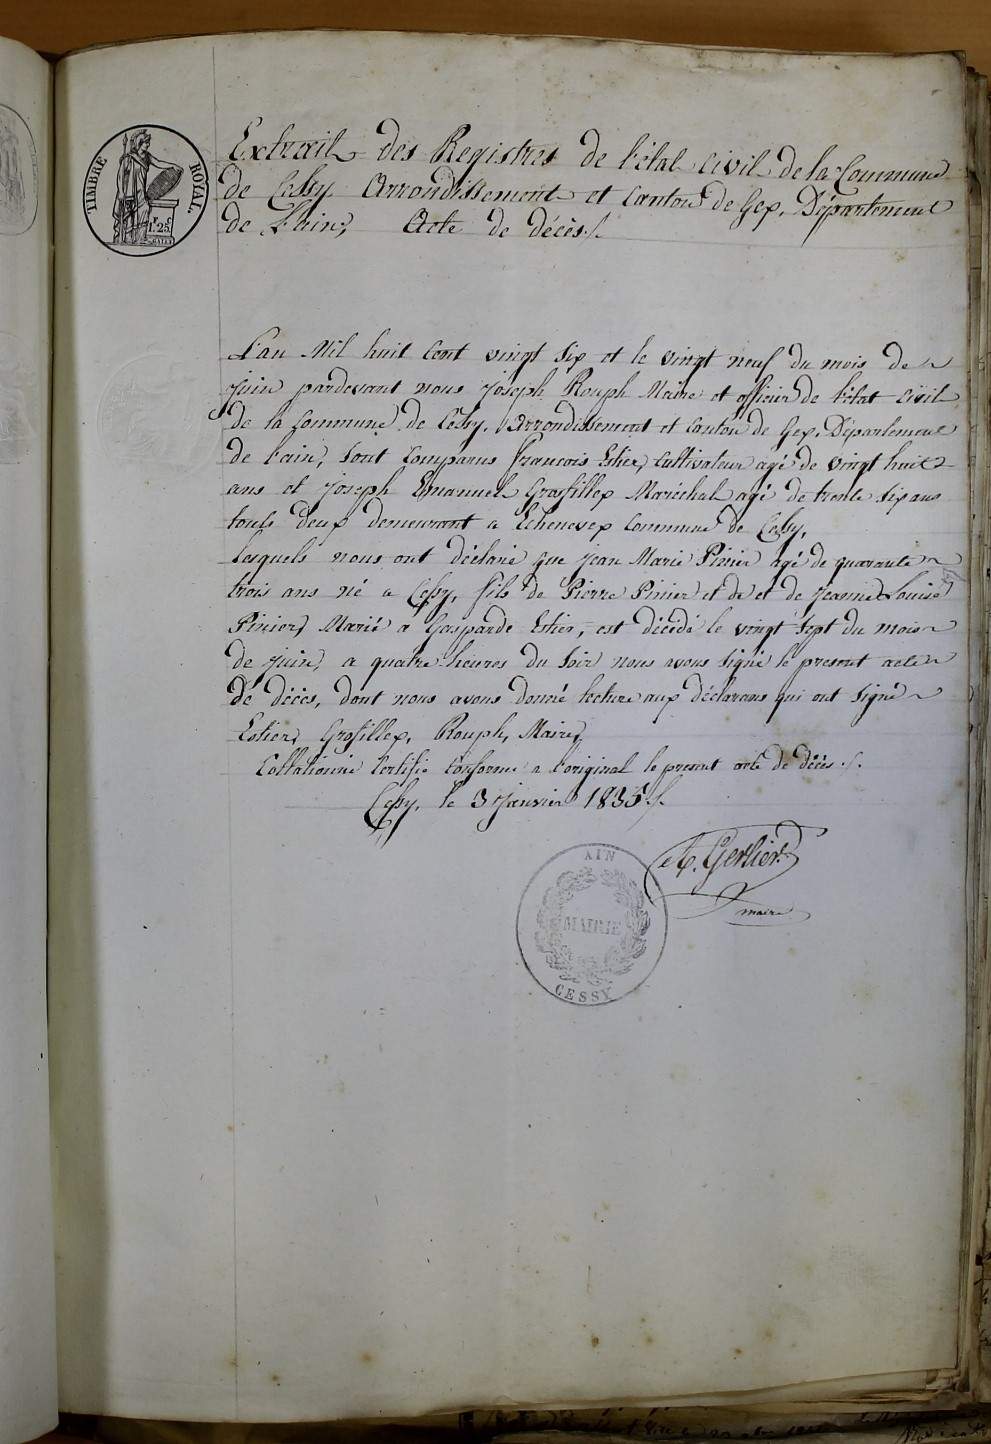 TIMBRE ROYAL.
1.F 25.C
Extrait des Registres de l'état civil de la Commune
de Cessy Arrondissement et Canton de Gex, Département
de L'ain, Acte de décès./.
L'an Mil huit Cent vingt six et le vingt neuf du mois de
Juin pardevant nous Joseph Rouph Maire et officier de l'état civil
de la Commune de Cessy, Arrondissement et Canton de Gex, Département
de L'ain, Sont Comparus francois Estier, Cultivateur agé de vingt huit
ans et Joseph Emanuel Grosfillex Maréchal agé de trente Six ans
touts deux demeurant a Echenevex Commune de Cessy,
Lesquels nous ont déclaré que Jean Marie Pinier agé de quarante
trois ans né a Cessy, fils de Pierre Pinier et de et de Jeanne Louise
Pinier, Marié a Gasparde Estier, est décédé le vingt Sept du mois
de Juin, a quatre heures du Soir nous avons Signé le present acte
de décès, dont nous avons donné lecture aux déclarans qui ont Signé
Estier, Grosfillex, Rouph, Maire,
Collationné Certifié Conforme a l'original le present acte de décès ./.
Cessy, le 3 Janvier 1835./.
A. Gerlier
maire
AIN
MAIRIE
CESSY